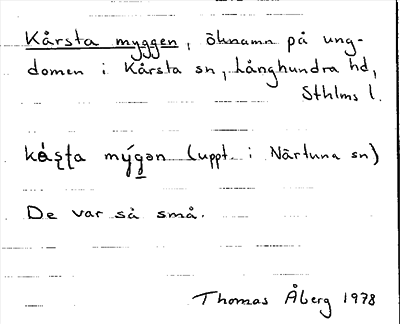 Kårsta myggen, öknamn på ung-
domen i Kårsta sn, Långhundra hd,
Sthlms l.
kǻʂʈa mýgən (uppt. i Närtuna sn)
De var så små.
Thomas Åberg 1978